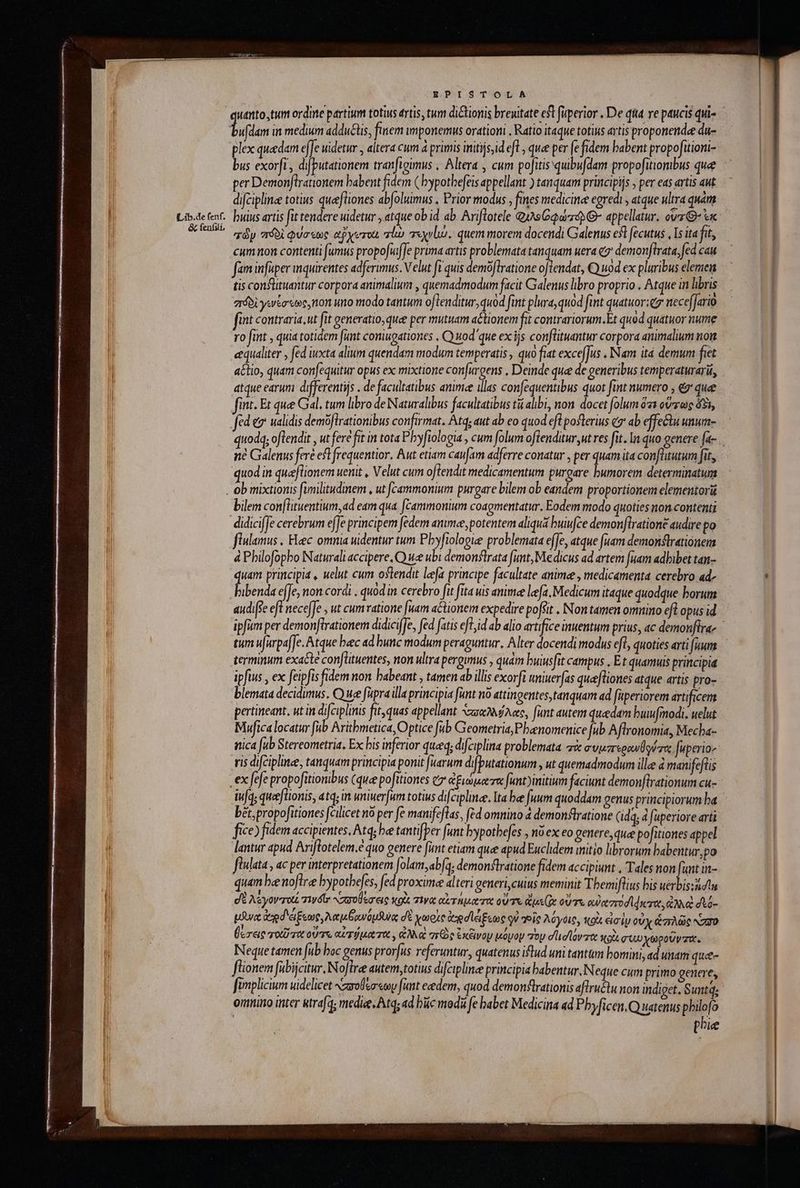 EPISTOLA
quanto, tum ordine partium totius artis, tum dictionis breuitate est superior. De qua re paucis qui-
busdam in medium adductis, finem imponemus orationi. Ratio itaque totius artis proponendæ du-
plex quædam esse uidetur, altera cum à primis initijs, id est, quæ per se fidem habent propositioni-
bus exorsi, disputationem transigimus. Altera, cum positis quibusdam propositionibus quæ
per Demonstrationem habent fidem (hypotheseis appellant) tanquam principijs, per eas artis aut
disciplinæ totius quæstiones absoluimus. Prior modus, fines medicinæ egredi, atque ultra quàm
Lib. de sens. huius artis sit tendere uidetur, atque ob id ab Aristotele φιλοσοφώτερος appellatur. οὗτος ἐκ
& sensili. τῶν περὶ φύσεως ἄρχεται τὴν τεχνὴν. quem morem docendi Galenus est secutus. Is ita fit,
cum non contenti sumus proposuisse prima artis problemata tanquam uera & demonstrata, sed cau
sam insuper inquirentes adferimus. Velut si quis demōstratione ostendat, Quòd ex pluribus elemen
tis constituantur corpora animalium, quemadmodum facit Galenus libro proprio. Atque in libris
περὶ γενέσεως, non uno modo tantum ostenditur, quòd sint plura, quòd sint quatuor: & necessariò
sint contraria, ut sit generatio, quæ per mutuam actionem fit contrariorum. Et quòd quatuor nume
ro sint, quia totidem sunt coniugationes. Quod'que ex ijs constituantur corpora animalium non
æqualiter, sed iuxta alium quendam modum temperatis, quò fiat excessus. Nam ita demum fiet
actio, quam consequitur opus ex mixtione consurgens. Deinde quæ de generibus temperaturarū,
atque earum differentijs. de facultatibus animæ illas consequentibus quot sint numero, & quæ
sint. Et quæ Gal. tum libro de Naturalibus facultatibus tū alibi, non docet solum ὅτι οὕτως ἐστὶ,
sed & ualidis demōstrationibus confirmat. Atq; aut ab eo quod est posterius & ab effectu unum-
quodq; ostendit, ut ferè fit in tota Physiologia, cum solum ostenditur, ut res sit. In quo genere sa-
nè Galenus ferè est frequentior. Aut etiam causam adferre conatur, per quam ita constitutum sit,
quod in quæstionem uenit, Velut cum ostendit medicamentum purgare humorem determinatum
ob mixtionis similitudinem, ut scammonium purgare bilem ob eandem proportionem elementorū
bilem constituentium, ad eam qua scammonium coagmentatur. Eodem modo quoties non contenti
didicisse cerebrum esse principem sedem animæ, potentem aliquā huiusce demonstrationē audire po
stulamus. Hæc omnia uidentur tum Physiologiæ problemata esse, atque suam demonstrationem
à Philosopho Naturali accipere. Quæ ubi demonstrata sunt, Medicus ad artem suam adhibet tan-
quam principia, uelut cum ostendit læsa principe facultate animæ, medicamenta cerebro ad-
hibenda esse, non cordi. quòd in cerebro sit sita uis animæ læsa. Medicum itaque quodque horum
audisse est necesse, ut cum ratione suam actionem expedire possit. Non tamen omnino est opus id
ipsum per demonstrationem didicisse, sed satis est, id ab alio artifice inuentum prius, ac demonstra-
tum usurpasse. Atque hæc ad hunc modum peraguntur. Alter docendi modus est, quoties arti suum
terminum exactè constituentes, non ultra pergimus, quàm huius sit campus. Et quamuis principia
ipsius, ex seipsis fidem non habeant, tamen ab illis exorsi uniuersas quæstiones atque artis pro-
blemata decidimus. Quæ supra illa principia sunt nō attingentes, tanquam ad superiorem artificem
pertineant. ut in disciplinis fit, quas appellant ὑπαλλήλας, sunt autem quædam huiusmodi. uelut
Musica locatur sub Arithmetica, Optice sub Geometria, Phænomenice sub Astronomia, Mecha-
nica sub Stereometria. Ex his inferior quæq; disciplina problemata τὰ συμπερανθέντα superio-
ris disciplinæ, tanquam principia ponit suarum disputationum, ut quemadmodum illæ à manifestis
ex sese propositionibus (quæ positiones & ἀξιώματα sunt) initium faciunt demonstrationum cu-
iusq; quæstionis, atq; in uniuersum totius disciplinæ. Ita hæ suum quoddam genus principiorum ha
bēt, propositiones scilicet nō per se manifestas, sed omnino à demonstratione (idq; à superiore arti
fice) fidem accipientes. Atq; hæ tantisper sunt hypotheses, nō ex eo genere, quæ positiones appel
lantur apud Aristotelem. è quo genere sunt etiam quæ apud Euclidem initio librorum habentur, po
stulata, ac per interpretationem solam, absq; demonstratione fidem accipiunt. Tales non sunt in-
quam hæ nostræ hypotheses, sed proximæ alteri generi, cuius meminit Themistius his uerbis: ἤδη
δὲ λέγονταί τινὲς ὑποθέσεις καὶ τινα αἰτήματα οὔτε ἄμεσα οὔτε αὐαπόδεικτα, ἀλλὰ δεό-
μενα ἀποδείξεως, λαμβανόμενα δὲ χωρὶς ἀποδείξεως ἐν τοῖς λόγοις, καὶ εἰσὶν οὐχ ἁπλῶς ὑπο
θέσεις τοῦτα οὔτε αἰτήματα, ἀλλὰ πρὸς ἐκεῖνον μόνον τὸν διδόντα καὶ συγχωροῦντα.
Neque tamen sub hoc genus prorsus referuntur, quatenus istud uni tantum homini, ad unam quæ-
stionem subijcitur. Nostræ autem, totius disciplinæ principia habentur. Neque cum primo genere,
simplicium uidelicet ὑποθέσεων sunt eædem, quod demonstrationis astructu non indiget. Suntq;
omnino inter utrasq; mediæ. Atq; ad hūc modū se habet Medicina ad Physicen. Quatenus philoso
phiæ